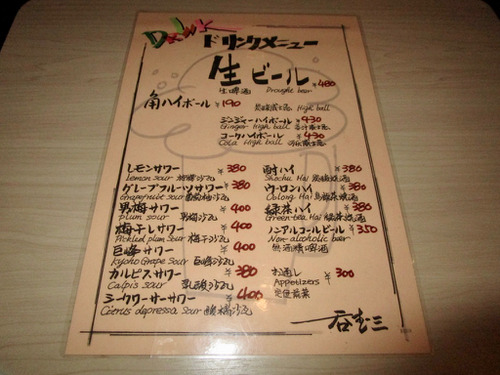 DRINK
ドリンクメニュー
生ビール ¥480
生啤酒 Drought beer
角ハイボール ¥190
High ball
ジンジャーハイボール ¥430
Ginger High ball
コークハイボール ¥430
Cola High ball
レモンサワー ¥380
Lemon sour
グレープフルーツサワー ¥380
Grapefruit sour
男梅サワー ¥400
plum sour
梅干しサワー ¥400
Pickled plum sour
巨峰サワー ¥400
Kyoho Grape Sour
カルピスサワー ¥380
Calpis sour
シークワーサーサワー ¥400
Citrus depressa Sour
酎ハイ ¥380
Shochu Hai
ウーロンハイ ¥380
Oolong Hai
緑茶ハイ ¥380
Green-tea Hai
ノンアルコールビール ¥350
Non-alcoholic beer
お通し ¥300
Appetizers